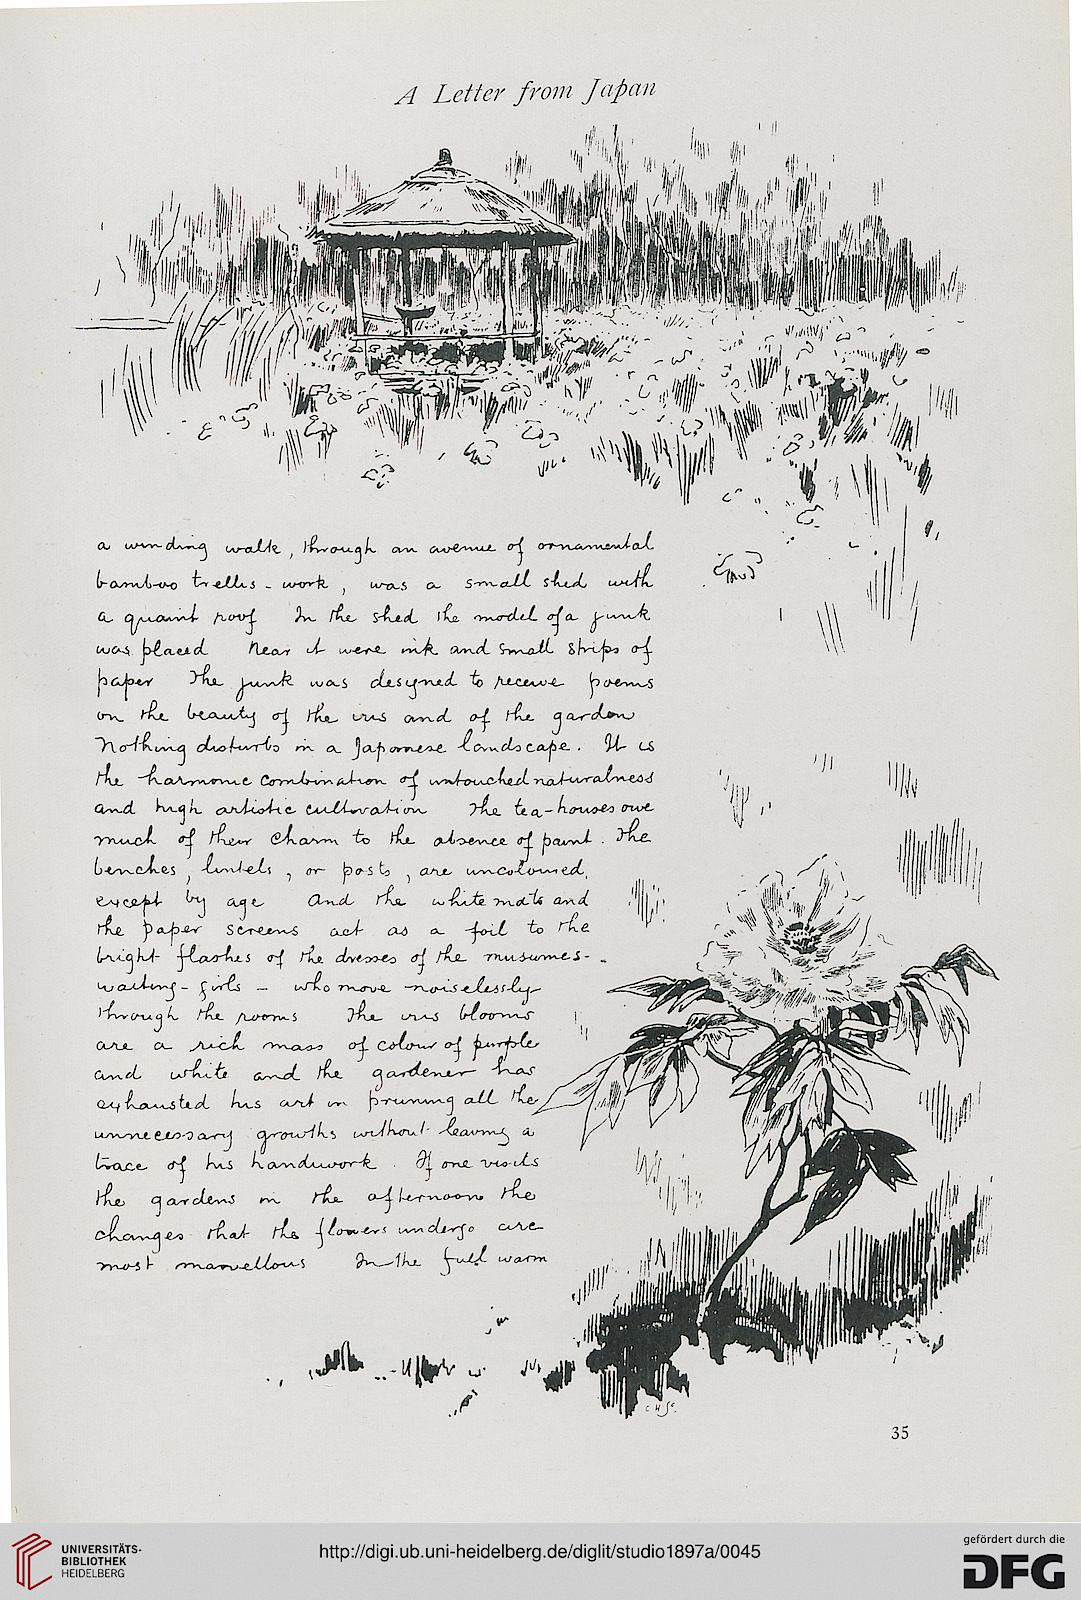 A Letter from Japan
a winding walk, through an avenue of ornamental
bamboo trellis-work, was a small shed with
a quaint roof In the shed the model of a junk
was placed Near it were ink and small strips of
paper The junk was designed to receive poems
on the beauty of the iris and of the garden
Nothing disturbs in a Japanese landscape. It is
the harmonic combination of untouched naturalness
and high artistic cultivation The tea-houses owe
much of their charm to the absence of paint. The
benches, lintels, or posts, are uncoloured,
except by age And the white mats and
the paper screens act as a foil to the
bright flashes of the dresses of the musumes-
waiting-girls - who move noiselessly
through the rooms The iris blooms
are a rich mass of colour of purple
and white and the gardener has
exhausted his art in pruning all the
unnecessary growths without leaving a
trace of his handiwork. If one visits
the gardens in the afternoon the
changes that the flowers undergo are
most marvellous In the full warm
C H Sc.
35
UNIVERSITÄTS-
BIBLIOTHEK
HEIDELBERG
http://digi.ub.uni-heidelberg.de/diglit/studio1897a/0045
gefördert durch die
DFG